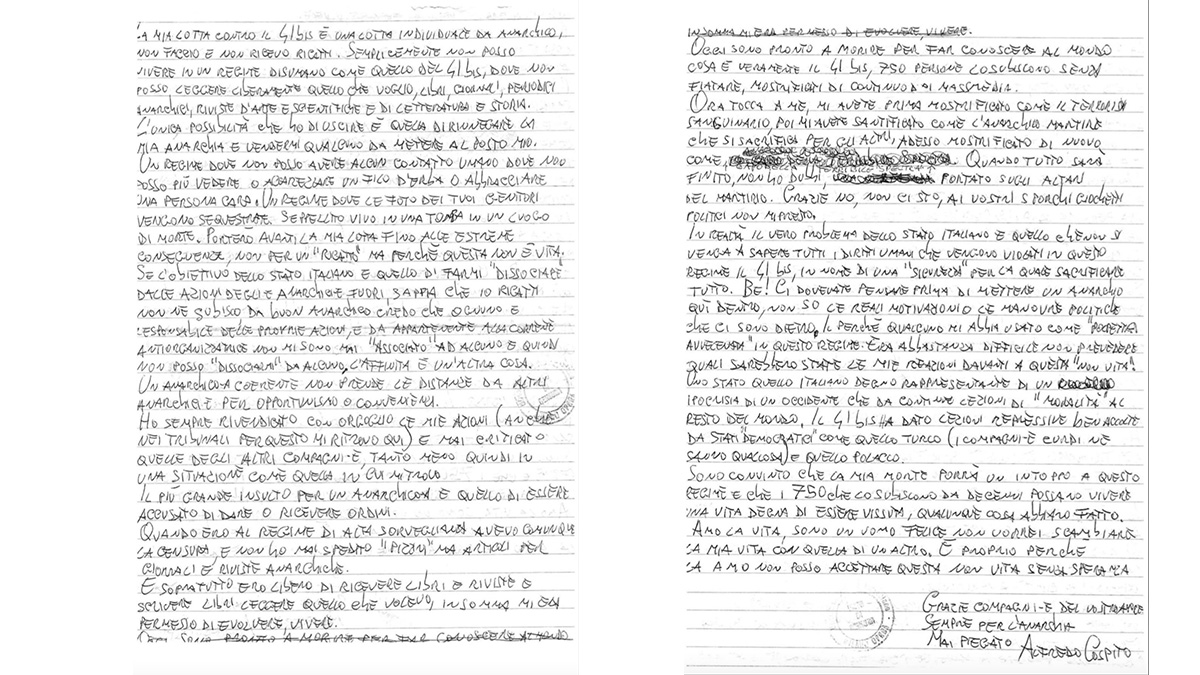 LA MIA LOTTA CONTRO IL 41 BIS È UNA LOTTA INDIVIDUALE DA ANARCHICO,
NON FACCIO E NON RICEVO RICATTI. SEMPLICEMENTE NON POSSO
VIVERE IN UN REGIME DISUMANO COME QUELLO DEL 41 BIS, DOVE NON
POSSO LEGGERE LIBERAMENTE QUELLO CHE VOGLIO, LIBRI, GIORNALI, PERIODICI
ANARCHICI, RIVISTE D'ARTE E SCENTIFICHE E DI LETTERATURA E STORIA.
L'UNICA POSSIBILITÀ CHE HO DI USCIRE È QUELLA DI RINNEGARE LA
MIA ANARCHIA E VENDERMI QUALCUNO DA METTERE AL POSTO MIO.
UN REGIME DOVE NON POSSO AVERE ALCUN CONTATTO UMANO DOVE NON
POSSO PIÙ VEDERE O ACCAREZZARE UN FILO D'ERBA O ABBRACCIARE
UNA PERSONA CARA. UN REGIME DOVE LE FOTO DEI TUOI GENITORI
VENGONO SEQUESTRATE. SEPPELLITO VIVO IN UNA TOMBA IN UN LUOGO
DI MORTE. PORTERÒ AVANTI LA MIA LOTTA FINO ALLE ESTREME
CONSEGUENZE, NON PER UN "RICATTO" MA PERCHÈ QUESTA NON È VITA.
SE L'OBIETTIVO DELLO STATO ITALIANO È QUELLO DI FARMI "DISSOCIARE"
DALLE AZIONI DEGLI E ANARCHICI-E FUORI, SAPPIA CHE IO RICATTI
NON NE SUBISCO DA BUON ANARCHICO CREDO CHE OGNUNO È
RESPONSABILE DELLE PROPRIE AZIONI, E DA APPARTENENTE ALLA CORRENTE
ANTIORGANIZZATRICE NON MI SONO MAI "ASSOCIATO" AD ALCUNO E QUINDI
NON POSSO "DISSOCIARMI" DA ALCUNO, L'AFFINITÀ È UN'ALTRA COSA.
UN ANARCHICO-A COERENTE NON PRENDE LE DISTANZE DA ALTRI
ANARCHICI-E PER OPPORTUNISMO O CONVENIENZA.
HO SEMPRE RIVENDICATO CON ORGOGLIO LE MIE AZIONI (ANCHE
NEI TRIBUNALI PER QUESTO MI RITROVO QUI) E MAI CRITICATO
QUELLE DEGLI ALTRI COMPAGNI-E, TANTO MENO QUINDI IN
UNA SITUAZIONE COME QUELLA IN CUI MI TROVO
IL PIÙ GRANDE INSULTO PER UN ANARCHICO-A È QUELLO DI ESSERE
ACCUSATO DI DARE O RICEVERE ORDINI.
QUANDO ERO AL REGIME DI ALTA SORVEGLIANZA AVEVO COMUNQUE
LA CENSURA, E NON HO MAI SPEDITO "PIZZINI" MA ARTICOLI PER
GIORNALI E RIVISTE ANARCHICHE.
E SOPRATUTTO ERO LIBERO DI RICEVERE LIBRI E RIVISTE E
SCRIVERE LIBRI LEGGERE QUELLO CHE VOLEVO, INSOMMA MI ERA
PERMESSO DI EVOLVERE, VIVERE.
OGGI SONO PRONTO A MORIRE PER FAR CONOSCERE AL MONDO
INSOMMA MI ERA PERMESSO DI EVOLVERE, VIVERE.
OGGI SONO PRONTO A MORIRE PER FAR CONOSCERE AL MONDO
COSA È VERAMENTE IL 41 BIS, 750 PERSONE LO SUBISCONO SENZA
FIATARE, MOSTRIFICATI DI CONTINUO DAI MASSMEDIA.
ORA TOCCA A ME, MI AVETE PRIMA MOSTRIFICATO COME IL TERRORISTA
SANGUINARIO, POI MI AVETE SANTIFICATO COME L'ANARCHICO MARTIRE
CHE SI SACRIFICA PER GLI ALTRI, ADESSO MOSTRIFICATO DI NUOVO
COME, TERRIBILE SPETTRO. QUANDO TUTTO SARÀ
FINITO, NON HO DUBBI, PORTATO SUGLI ALTARI
DEL MARTIRIO. GRAZIE NO, NON CI STO, AI VOSTRI SPORCHI GIOCHETTI
POLITICI NON MI PRESTO.
IN REALTÀ IL VERO PROBLEMA DELLO STATO ITALIANO È QUELLO CHE NON SI
VENGA A SAPERE TUTTI I DIRITTI UMANI CHE VENGONO VIOLATI IN QUESTO
REGIME IL 41 BIS, IN NOME DI UNA "SICUREZZA" PER LA QUALE SACRIFICARE
TUTTO. BE! CI DOVEVATE PENSARE PRIMA DI METTERE UN ANARCHICO
QUÌ DENTRO, NON SO LE REALI MOTIVAZIONI O LE MANOVRE POLITICHE
CHE CI SONO DIETRO, IL PERCHÈ QUALCUNO MI ABBIA USATO COME "POLPETTA
AVVELENATA" IN QUESTO REGIME. ERA ABBASTANZA DIFFICILE NON PREVEDERE
QUALI SAREBBERO STATE LE MIE REAZIONI DAVANTI A QUESTA "NON VITA".
UNO STATO QUELLO ITALIANO DEGNO RAPPRESENTANTE DI UN
IPOCRISIA DI UN OCCIDENTE CHE DA CONTINUE LEZIONI DI "MORALITÀ" AL
RESTO DEL MONDO. IL 41 BIS HA DATO LEZIONI REPRESSIVE BEN ACCOLTE
DA STATI "DEMOCRATICI" COME QUELLO TURCO (I COMPAGNI-E CURDI NE
SANNO QUALCOSA) E QUELLO POLACCO.
SONO CONVINTO CHE LA MIA MORTE PORRÀ UN INTOPPO A QUESTO
REGIME E CHE I 750 CHE LO SUBISCONO DA DECENNI POSSANO VIVERE
UNA VITA DEGNA DI ESSERE VISSUTA, QUALUNQUE COSA ABBIANO FATTO.
AMO LA VITA, SONO UN UOMO FELICE NON VORREI SCAMBIARE
LA MIA VITA CON QUELLA DI UN ALTRO. E PROPRIO PERCHÈ
LA AMO NON POSSO ACCETTARE QUESTA NON VITA SENZA SPERANZA
GRAZIE COMPAGNI-E DEL VOSTRO AMORE
SEMPRE PER L'ANARCHIA
MAI PIEGATO ALFREDO COSPITO